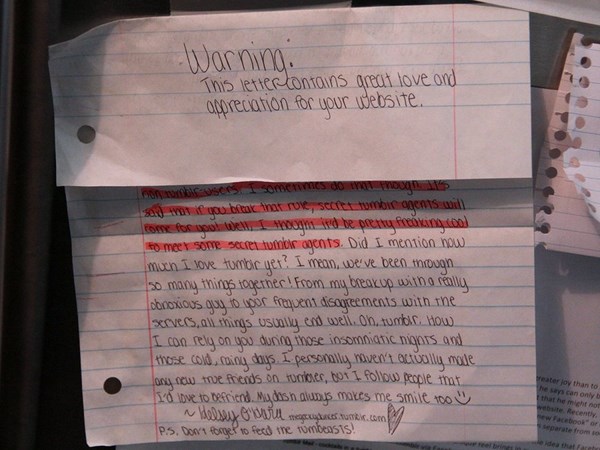 Warning:
This letter contains great love and
appreciation for your website.
non tumblr-users. I sometimes do that though. It's
said that if you break that rule, secret tumblr agents will
come for you! Well, I thought it'd be pretty freaking cool
to meet some secret tumblr agents. Did I mention how
much I love tumblr yet? I mean, we've been through
so many things together! From my breakup with a really
obnoxious guy to your frequent disagreements with the
servers, all things usually end well. Oh, tumblr. How
I can rely on you during those insomniatic nights and
those cold, rainy days. I personally haven't actually made
any new true friends on tumbler, but I follow people that
I'd love to befriend. My dash always makes me smile too
P.S. Don't forget to feed the tumbeasts!
greater joy than to
he says can only b
that he might not
website. Recently,
new Facebook" or
separate from
idea that